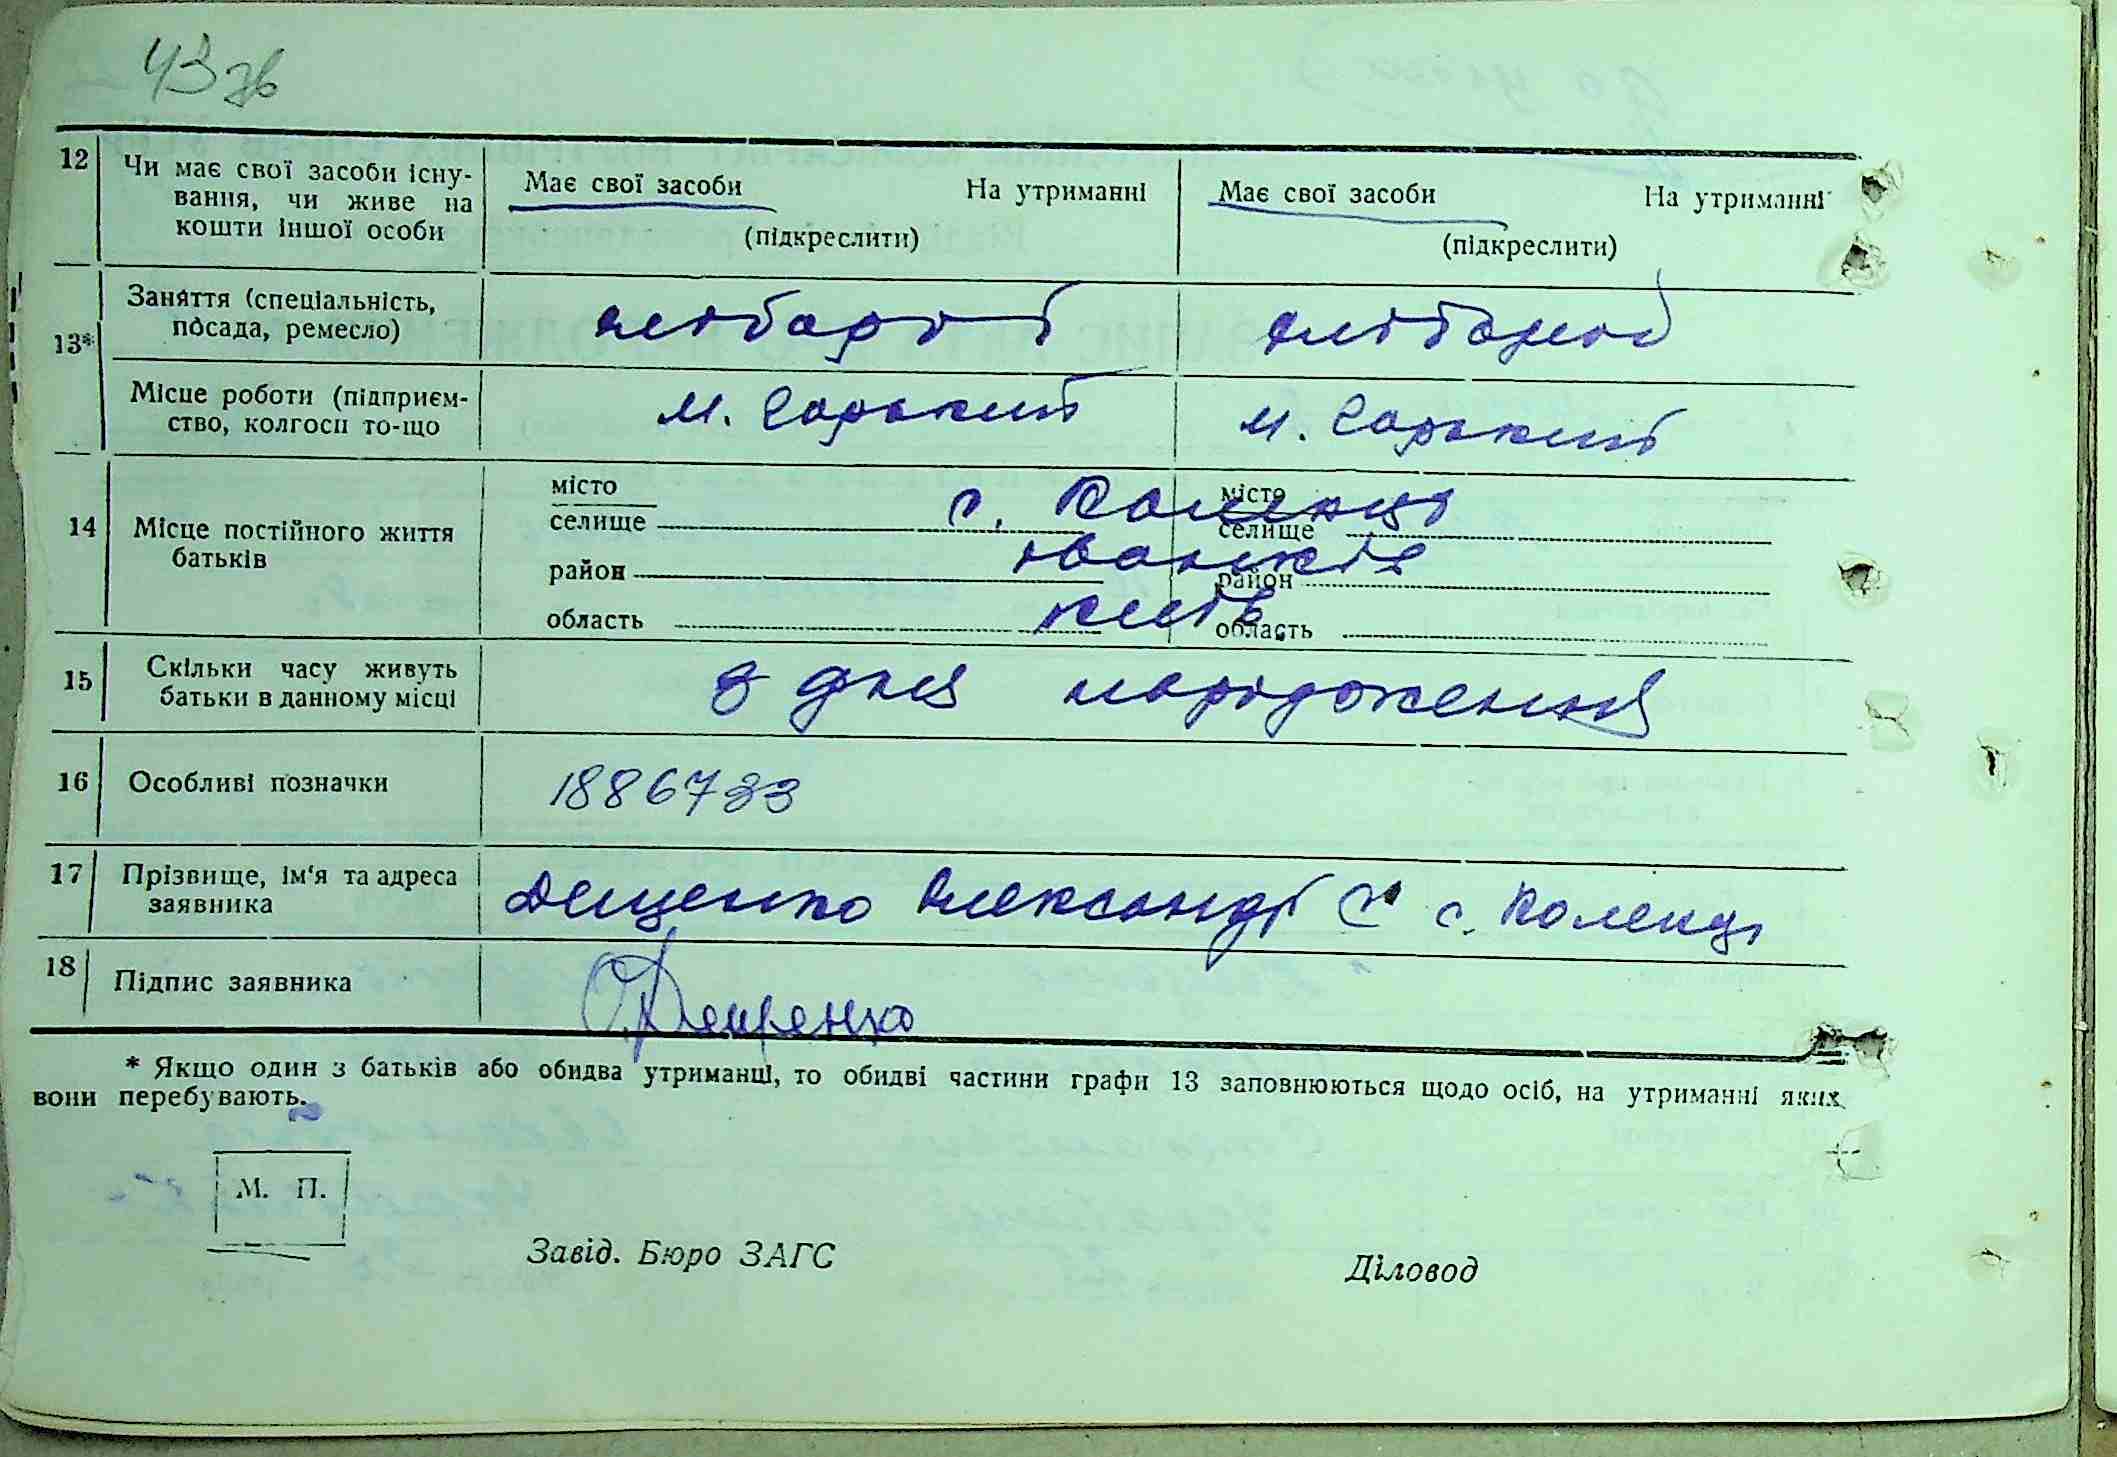 43 зв
12 Чи має свої засоби існу-
вання, чи живе на
кошти іншої особи
Має свої засоби На утриманні
(підкреслити)
Має свої засоби На утриманні
(підкреслити)
13*
Заняття (спеціальність,
посада, ремесло)
хлібороб хлібороб
Місце роботи (підприєм-
ство, колгосп то-що
М. Горький М. Горький
14 Місце постійного життя
батьків
місто
селище
район
область
місто
селище
район
область
с. Коленці
Іванків
Київ.
15 Скільки часу живуть
батьки в данному місці
з дня народження
16 Особливі позначки
1886733
17 Прізвище, ім'я та адреса
заявника
Дещенко Олександр с. Коленці
18 Підпис заявника
О. Дещенко
* Якщо один з батьків або обидва утриманці, то обидві частини графи 13 заповнюються щодо осіб, на утриманні яких
вони перебувають.
М. П.
Завід. Бюро ЗАГС Діловод